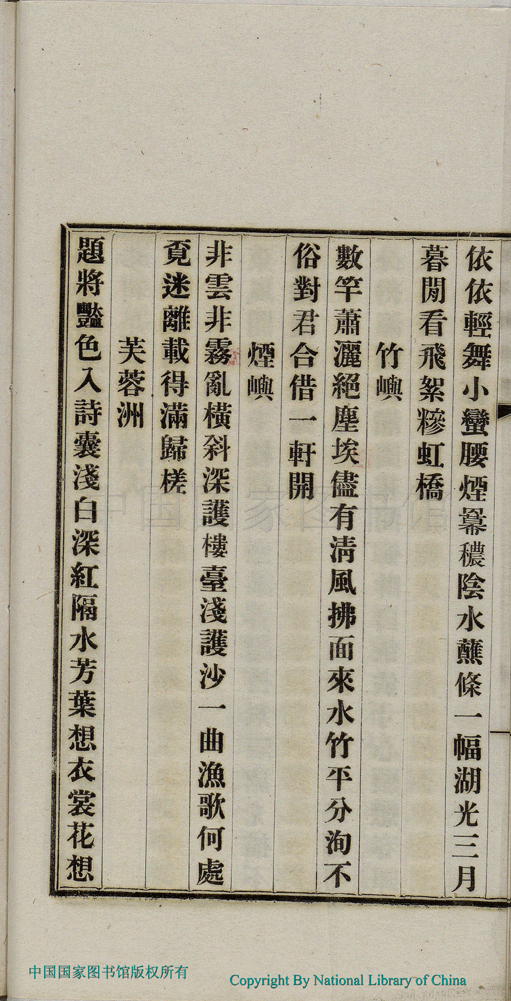 依依輕舞小蠻腰煙羃穠陰水蘸條一幅湖光三月
暮閒看飛絮糝虹橋
竹嶼
數竿蕭灑絕塵埃儘有淸風拂面來水竹平分洵不
俗對君合借一軒開
煙嶼
非雲非霧亂橫斜深護樓臺淺護沙一曲漁歌何處
覓迷離載得滿歸槎
芙蓉洲
題將豔色入詩囊淺白深紅隔水芳葉想衣裳花想
中国国家图书馆
中国国家图书馆版权所有
Copyright By National Library of China